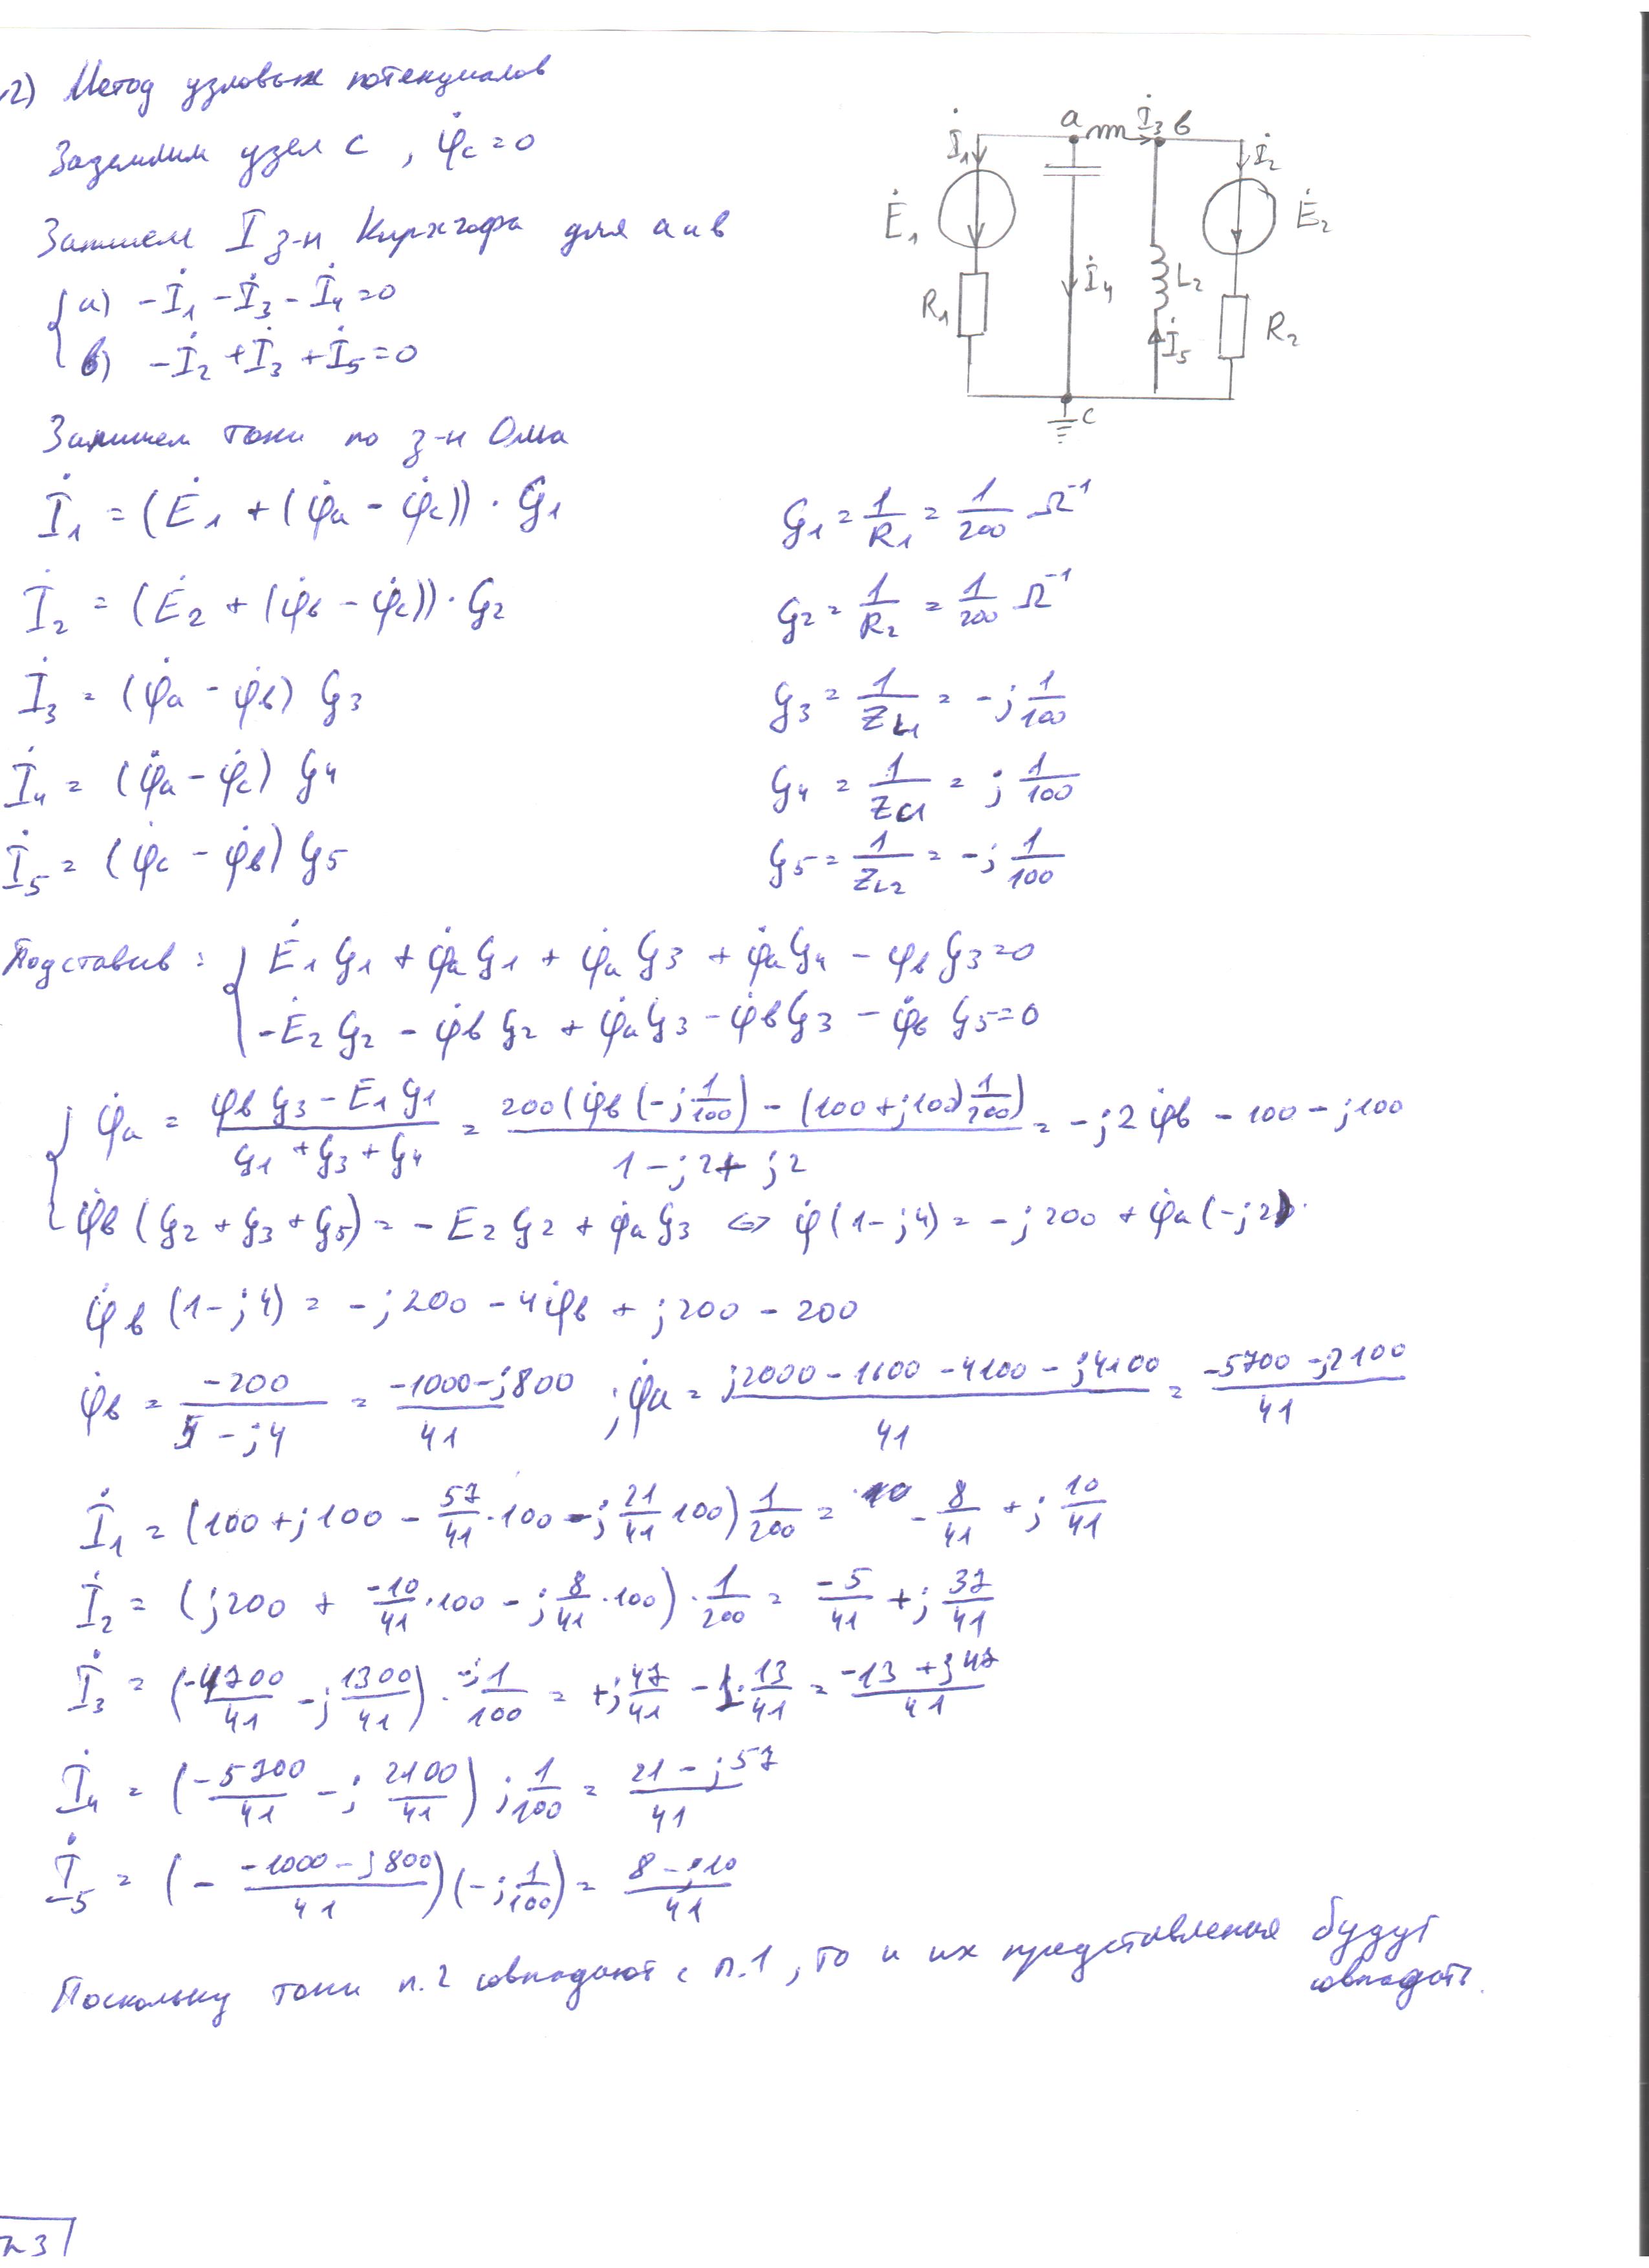 2) Метод узловых потенциалов
Заземлим узел c , φ̇c = 0
Запишем I з-н Кирхгофа для a и в
a) -İ1 - İ3 - İ4 = 0
в) -İ2 + İ3 + İ5 = 0
İ1 a İ3 в İ2
Ė1 Ė2
R1 İ4 L2 İ5 R2
c
Запишем токи по з-н Ома
İ1 = (Ė1 + (φ̇a - φ̇c)) · G1 G1 = 1/R1 = 1/200 Ω⁻¹
İ2 = (Ė2 + (φ̇в - φ̇c)) · G2 G2 = 1/R2 = 1/200 Ω⁻¹
İ3 = (φ̇a - φ̇в) G3 G3 = 1/ZL1 = -j 1/100
İ4 = (φ̇a - φ̇c) G4 G4 = 1/ZC1 = j 1/100
İ5 = (φ̇c - φ̇в) G5 G5 = 1/ZL2 = -j 1/100
Подставив: Ė1 G1 + φ̇a G1 + φ̇a G3 + φ̇a G4 - φв G3 = 0
-Ė2 G2 - φ̇в G2 + φ̇a G3 - φ̇в G3 - φ̇в G5 = 0
φ̇a = (φв G3 - E1 G1)/(G1 + G3 + G4) = 200(φ̇в(-j 1/100) - (100 + j100) 1/200)/(1 - j2 + j2) = -j2φ̇в - 100 - j100
φ̇в (G2 + G3 + G5) = -E2 G2 + φ̇a G3 ⇔ φ̇(1 - j4) = -j200 + φ̇a(-j2)
φ̇в (1 - j4) = -j200 - 4φ̇в + j200 - 200
φ̇в = -200/(5 - j4) = (-1000 - j800)/41 ; φ̇a = (j2000 - 1600 - 4100 - j4100)/41 = (-5700 - j2100)/41
İ1 = (100 + j100 - 57/41 · 100 - j 21/41 100) 1/200 = -8/41 + j 10/41
İ2 = (j200 + -10/41 · 100 - j 8/41 · 100) · 1/200 = -5/41 + j 37/41
İ3 = (-4700/41 - j 1300/41) · -j1/100 = +j 47/41 - 1· 13/41 = (-13 + j47)/41
İ4 = (-5700/41 - j 2100/41) j 1/100 = (21 - j57)/41
İ5 = (- (-1000 - j800)/41)(-j 1/100) = (8 - j10)/41
Поскольку токи п.2 совпадают с п.1, то и их представления будут
совпадать.
n3